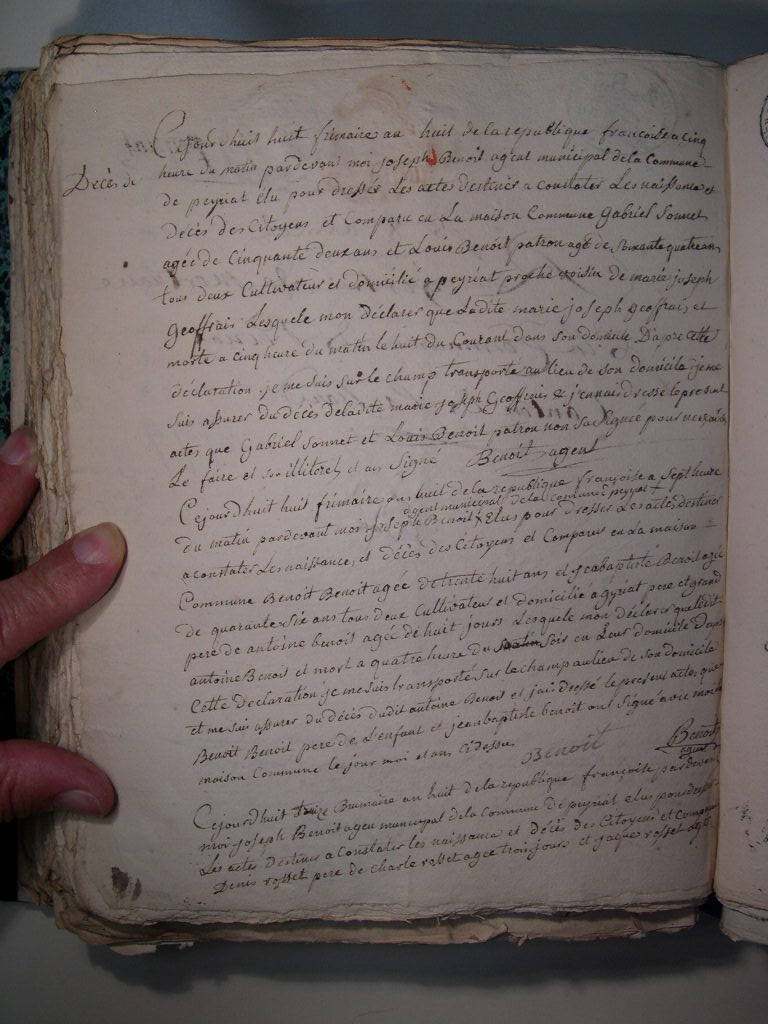 Cejourd'huit huit frimaire an huit de la republique francoise a cinq
Decès de
heure du matin pardevant moi joseph Benoit agent municipal de la Commune
de peyriat élu pour dresser Les actes destiner a constater Les naissance et
Decès des Citoyens et Comparu en La maison Commune Gabriel Sonnet
agée de Cinquante deux ans et Louis Benoit patron agé de Soixante quatre ans
tous deux Cultivateur et domicilié a peyriat proche voisin de marie joseph
Geoffrais Lesquele mon déclarer que Ladite marie joseph Geoffrais et
morte a cinq heure du matin le huit du Courant dans son domicile D'apre Cette
déclaration je me suis sur le champ transporté au lieu de son domicile je me
suis assurer du décès de ladite marie joseph Geoffrais & j'en nais dressé le present
actes que Gabriel Sonnet et Louis Benoit patron non sa signée pour ne savoir
Le faire et illitere et an Signé Benoit agent
Cejourd'huit huit frimaire an huit de la republique françoise a Sept heure
agent municipal de la commune peyriat
du matin pardevant moi joseph Benoit Elus pour dresser Les actes destiner
a constater Les naissances et décès des Citoyens et Comparus en La maison
Commune Benoit Benoit agée de trente huit ans et jeabaptiste Benoit agé
de quarante six ans tous deux Cultivateur et domicilié a pyriat pere et grand
pere de antoine benoit agée de huit jours Lesquele mon déclarer que Ledit
antoine Benoit et mort a quatre heure du soir en Leur domicile Dapre
Cette Declaration je me suis transporté sur le champ au lieu de son domicile
et me suis assurer du décès dudit antoine Benoit et jais dressé le present actes que
Benoit Benoit pere de L'enfant et jean baptiste benoit ont Signé avec moi
maison Commune le jour moi et ans Cidessus Benoit Benoit
agent
Cejourd'huit treize Brumaire an huit de la republique françoise par devant
moi joseph Benoit agen municipal de la Commune de peyriat elus pour dresser
Les actes destiner a Constater les naissance et décès des Citoyens et Comparus
Denis rosset pere de charle rosset agée trois jours et jaque rosset agé